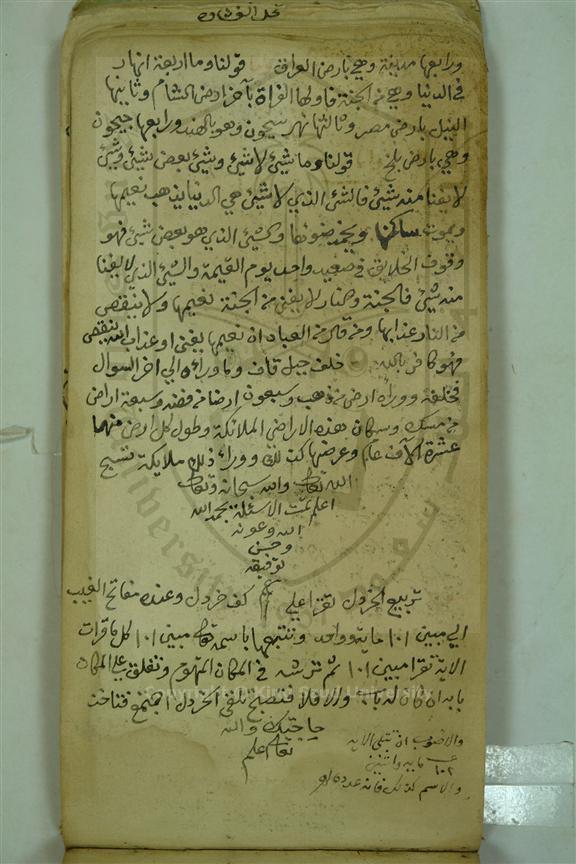 ورابعها مدينة وهي بارض العراق قولنا وما اربعة انهار
في الدنيا وهي من الجنة فاولها الفراة بآخر ارض الشام وثانيها
النيل بارض مصر وثالثها نهر سيحون وهو بالهند ورابعها جيحون
وهي بارض بلخ قولنا وما شيئ لا شيئ وشيئ بعض شيئ وشيئ
لا يفنا منه شيئ فالشئ الذي لا شيئ هي الدنيا يذهب نعيمها
ويموت ساكنها ويخمد ضوئها والشيئ الذي هو بعض شيئ فهو
وقوف الخلايق في صعيد واحد يوم القيمة والشيئ الذي لا يفنا
منه شيئ فالجنة والنار لا يفنى من الجنة نعيمها ولا ينقص
من النار عذابها ومن قال من العباد ان نعيمها يفنى او عذاب النار ينقص
فهو كافر بالله خلف جبل قاف وما ورائه الى اخر السوال
فخلفه ووراه ارض من ذهب وسبعون ارضا من فضه وسبعة اراض
من مسك وسكان هذه الاراضي الملائكة وطول كل ارض منهما
عشرة الآف عام وعرضها كذلك ووراء ذلك ملايكة تسبح
الله تعالى والله سبحانه وتعالى
اعلم تمت الاسئلة بحمد الله
الله وعونه
وحسن
توفيقه
تم
تربيع الخردل تقرا على كف خردل وعنده مفاتح الغيب
الى مبين ١٠١ ماية وواحد وتنتهيها باسمه تعالى مبين ١٠١ كل ما قرات
الاية تقرا مبين ١٠١ ثم ترشه في المكان المتهوم وتغلق على المكان
بابه ان كان له باب والا فلا فتصبح تلقى الخردل اجتمع فتاخذ
حاجتك والله
تعالى اعلم
والاصوب ان تتلى الايه
١٠٢ مايه واثنين
والاسم كذلك فانه عدده